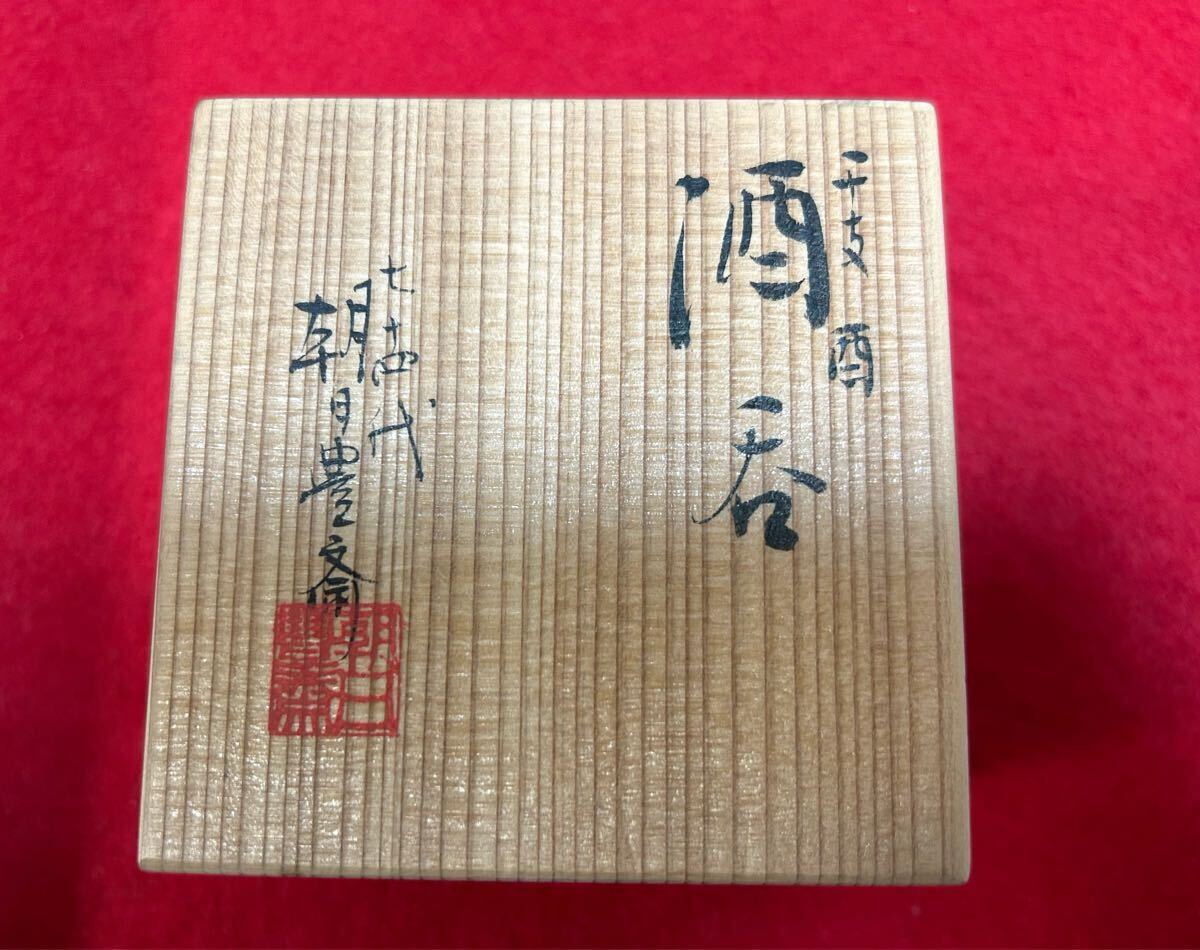 干支 酉
酒呑
七十四代
朝日豊斎
朝日
豊斎